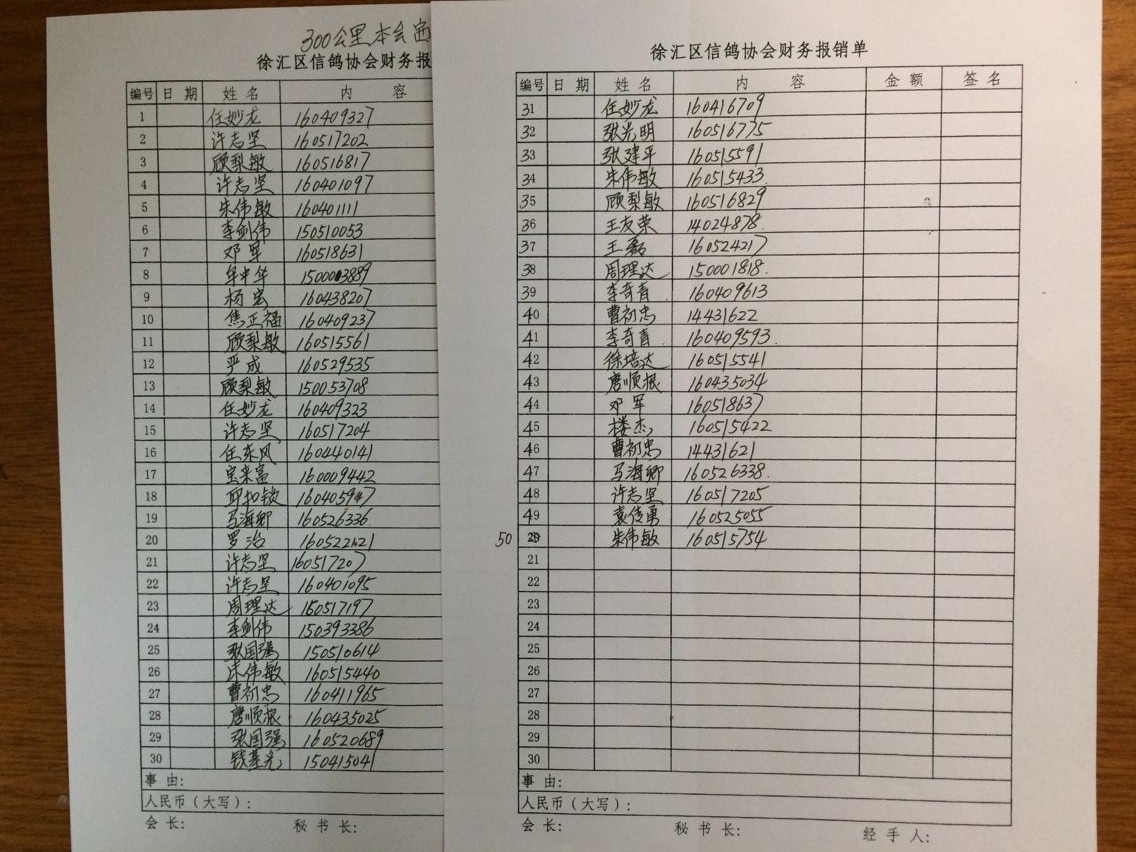 300公里本会
徐汇区信鸽协会财务报
编号 日 期 姓 名 内 容
1 任妙龙 160409327
2 许志坚 160517202
3 顾梨敏 160516817
4 许志坚 160401097
5 朱伟敏 160401111
6 李剑伟 150510053
7 邓军 160518631
8 牟中华 150003889
9 杨宏 160438207
10 焦正福 160409237
11 顾梨敏 160515561
12 严成 160529535
13 顾梨敏 150053708
14 任妙龙 160409323
15 许志坚 160517204
16 任东风 160440141
17 宝来富 160009442
18 邱和钦
19 马海卿 160526336
20 罗治
21 许志坚 160517207
22 许志坚 160401095
23 周理达 160517197
24 李剑伟 150393386
25 张国强 150510614
26 朱伟敏 160515440
27 曹初忠 160411965
28 唐顺根 160435025
29 张国强 160520689
30 钱基光 150415041
事 由:
人民币(大写):
会 长: 秘 书 长:
徐汇区信鸽协会财务报销单
编号 日 期 姓 名 内 容 金 额 签 名
31 任妙龙 160416709
32 张光明 160516775
33 张建平 160515591
34 朱伟敏 160515433
35 顾梨敏 160516829
36 王友荣 14024878
37 王磊 160524217
38 周理达 150001818
39 李奇青 160409613
40 曹初忠 14431622
41 李奇青 160409593
42 徐培达 160515541
43 唐顺根 160435034
44 邓军 160518637
45 楼杰 160515422
46 曹初忠 14431621
47 马海卿 160526338
48 许志坚 160517205
49 袁传勇 160525055
50 朱伟敏 160515754
21
22
23
24
25
26
27
28
29
30
事 由:
人民币(大写):
会 长: 秘 书 长: 经 手 人: